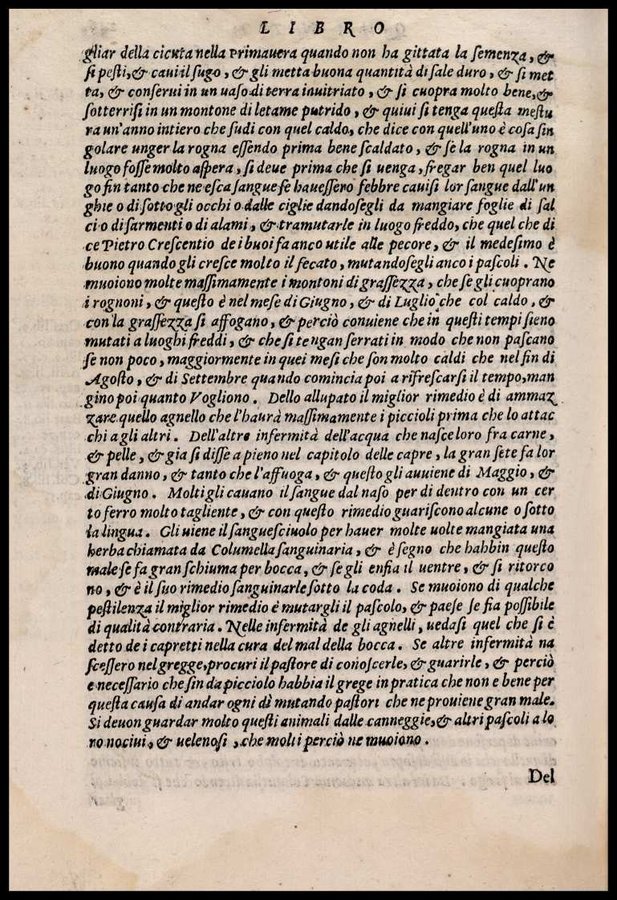 LIBRO
gliar della cicuta nella Primauera quando non ha gittata la semenza, &
si pesti, & caui il sugo, & gli metta buona quantità di sale duro, & si met
ta, & conserui in un uaso di terra inuitriato, & si cuopra molto bene, &
sotterrisi in un montone di letame putrido, & quiui si tenga questa mestu
ra un'anno intiero che sudi con quel caldo, che dice con quell'uno è cosa sin
golare unger la rogna essendo prima bene scaldato, & se la rogna in un
luogo fosse molto aspera, si deue prima che si uenga, fregar ben quel luo
go fin tanto che ne esca sangue se hauessero febbre cauisi lor sangue dall'un
ghie o di sotto gli occhi o dalle ciglie dandosegli da mangiare foglie di sal
ci o di sarmenti o di alami, & tramutarle in luogo freddo, che quel che di
ce Pietro Crescentio de i buoi fa anco utile alle pecore, & il medesimo è
buono quando gli cresce molto il fecato, mutandosegli anco i pascoli. Ne
muoiono molte massimamente i montoni di grassezza, che se gli cuoprano
i rognoni, & questo è nel mese di Giugno, & di Luglio che col caldo, &
con la grassezza si affogano, & perciò conuiene che in questi tempi sieno
mutati a luoghi freddi, & che si tengan serrati in modo che non pascano
se non poco, maggiormente in quei mesi che son molto caldi che nel fin di
Agosto, & di Settembre quando comincia poi a rifrescarsi il tempo, man
gino poi quanto Vogliono. Dello allupato il miglior rimedio è di ammaz
zare quello agnello che l'haurà massimamente i piccioli prima che lo attac
chi a gli altri. Dell'altre infermità dell'acqua che nasce loro fra carne,
& pelle, & gia si disse a pieno nel capitolo delle capre, la gran sete fa lor
gran danno, & tanto che l'affuoga, & questo gli auuiene di Maggio, &
di Giugno. Molti gli cauano il sangue dal naso per di dentro con un cer
to ferro molto tagliente, & con questo rimedio guariscono alcune o sotto
la lingua. Gli uiene il sangue sciuolo per hauer molte uolte mangiata una
herba chiamata da Columella sanguinaria, & è segno che habbin questo
male se fa gran schiuma per bocca, & se gli enfia il uentre, & si ritorco
no, & è il suo rimedio sanguinarle sotto la coda. Se muoiono di qualche
pestilenza il miglior rimedio è mutargli il pascolo, & paese se fia possibile
di qualità contraria. Nelle infermità de gli agnelli, uedasi quel che si è
detto de i capretti nella cura del mal della bocca. Se altre infermità na
scessero nel gregge, procuri il pastore di conoscerle, & guarirle, & perciò
e necessario che sin da picciolo habbia il grege in pratica che non e bene per
questa causa di andar ogni dì mutando pastori che ne prouiene gran male.
Si deuon guardar molto questi animali dalle canneggie, & altri pascoli a lo
ro nociui, & uelenosi, che molti perciò ne muoiono.
Del